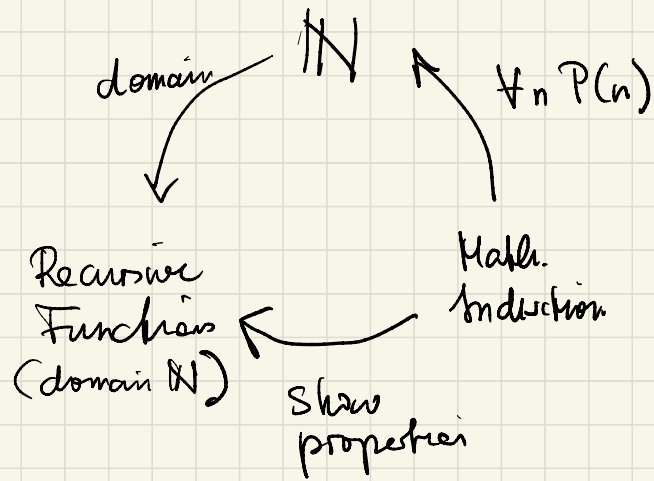 ℕ
domain
∀n P(n)
Recursive
Functions
(domain ℕ)
Math.
Induction
Show
properties